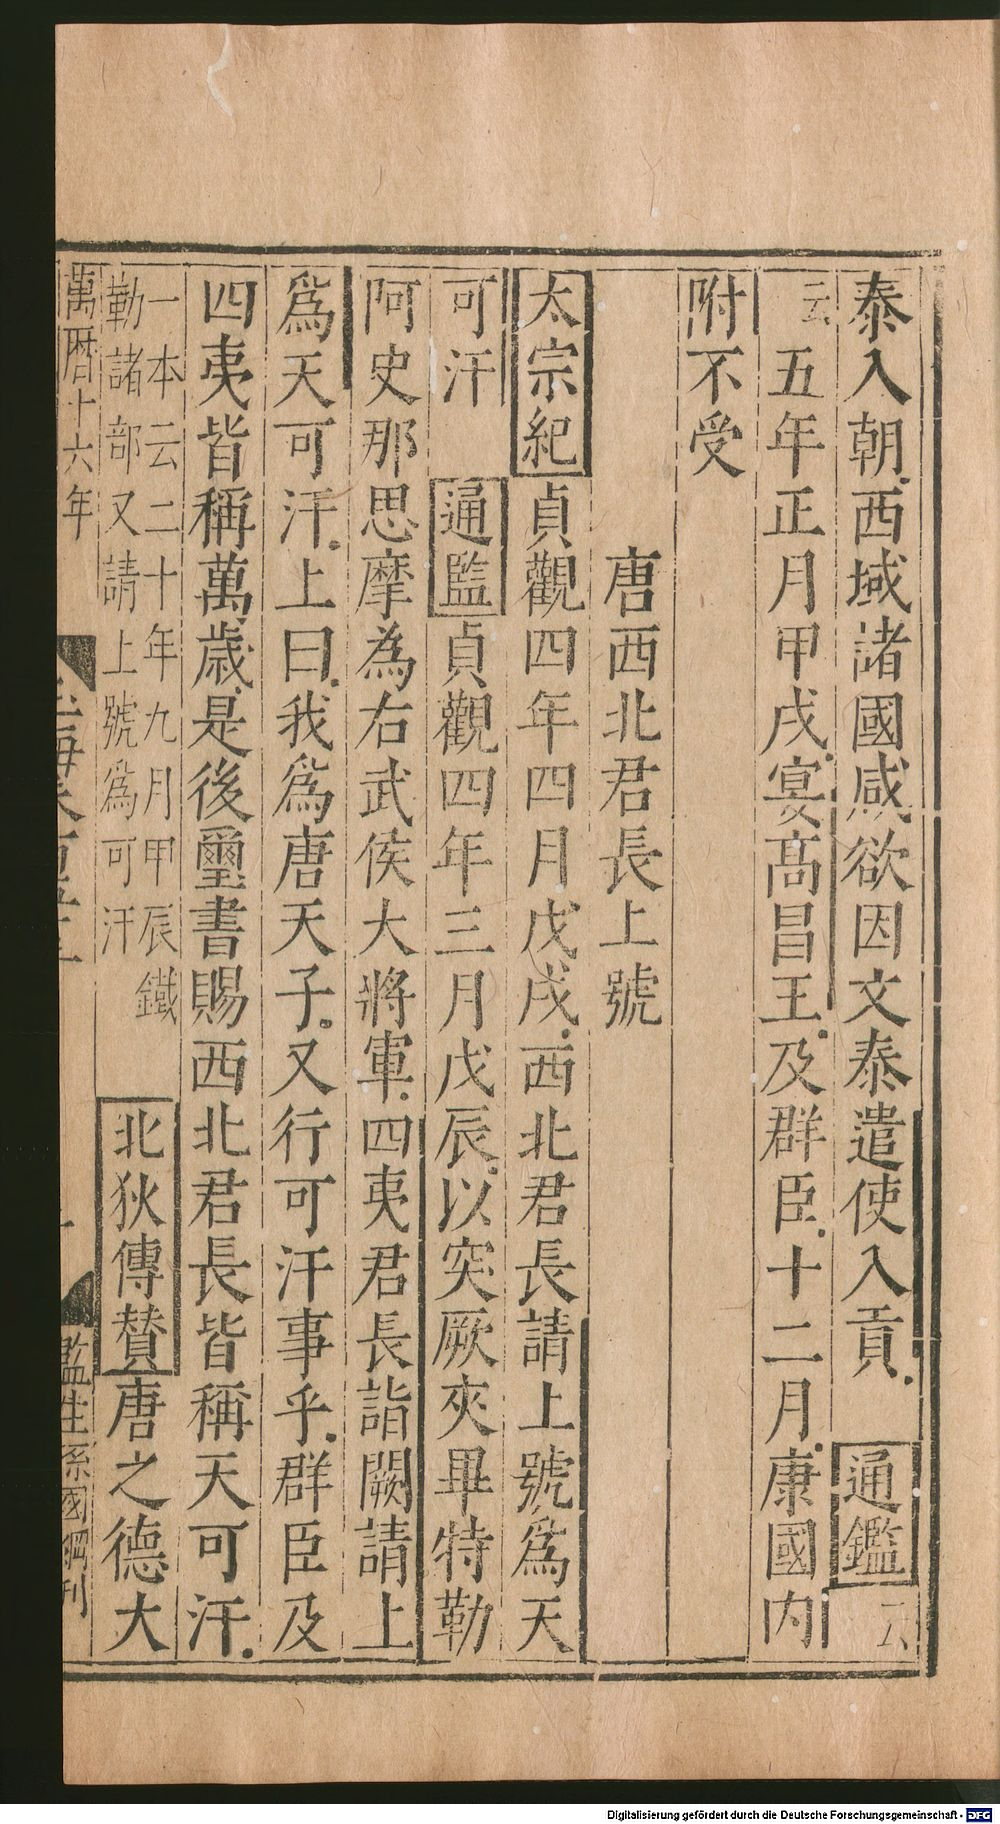 泰入朝西域諸國咸欲因文泰遣使入貢　通鑑云
云　五年正月甲戌宴高昌王及群臣十二月康國内
附不受
唐西北君長上號
太宗紀貞觀四年四月戊戌西北君長請上號爲天
可汗　通監貞觀四年三月戊辰以突厥夾畢特勒
阿史那思摩為右武侯大將軍四夷君長詣闕請上
爲天可汗上曰我爲唐天子又行可汗事乎群臣及
四夷皆稱萬歲是後璽書賜西北君長皆稱天可汗
一本云二十年九月甲辰鐵
勒諸部又請上號爲可汗
北狄傳贊唐之德大
萬曆十六年
監生孫國綱刊
Digitalisierung gefördert durch die Deutsche Forschungsgemeinschaft - DFG